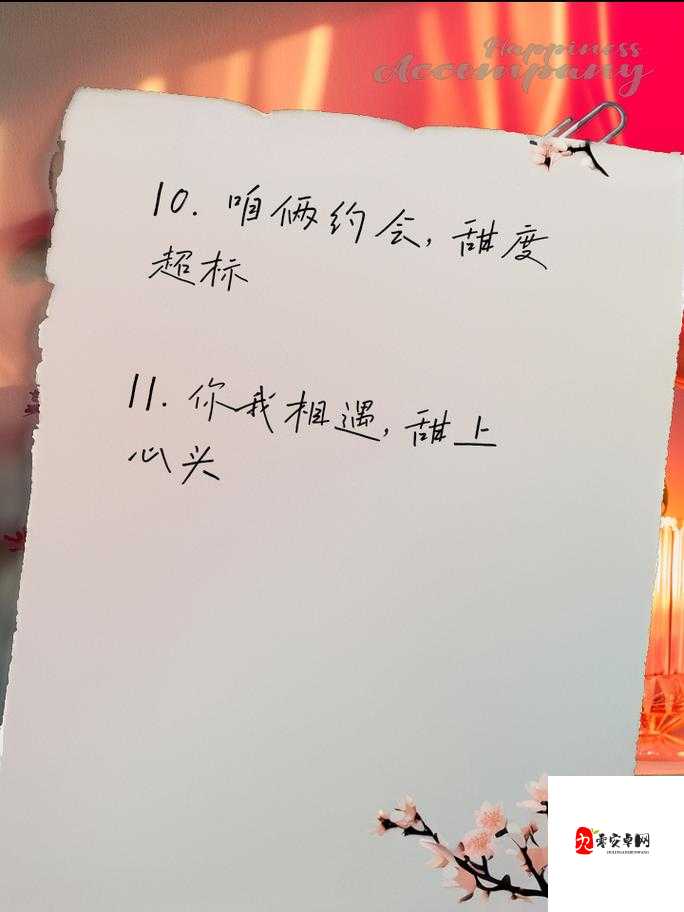 Happiness
Accompany
10. 咱俩约会, 甜度
超标
11. 你我相遇, 甜上
心头
零安卓网